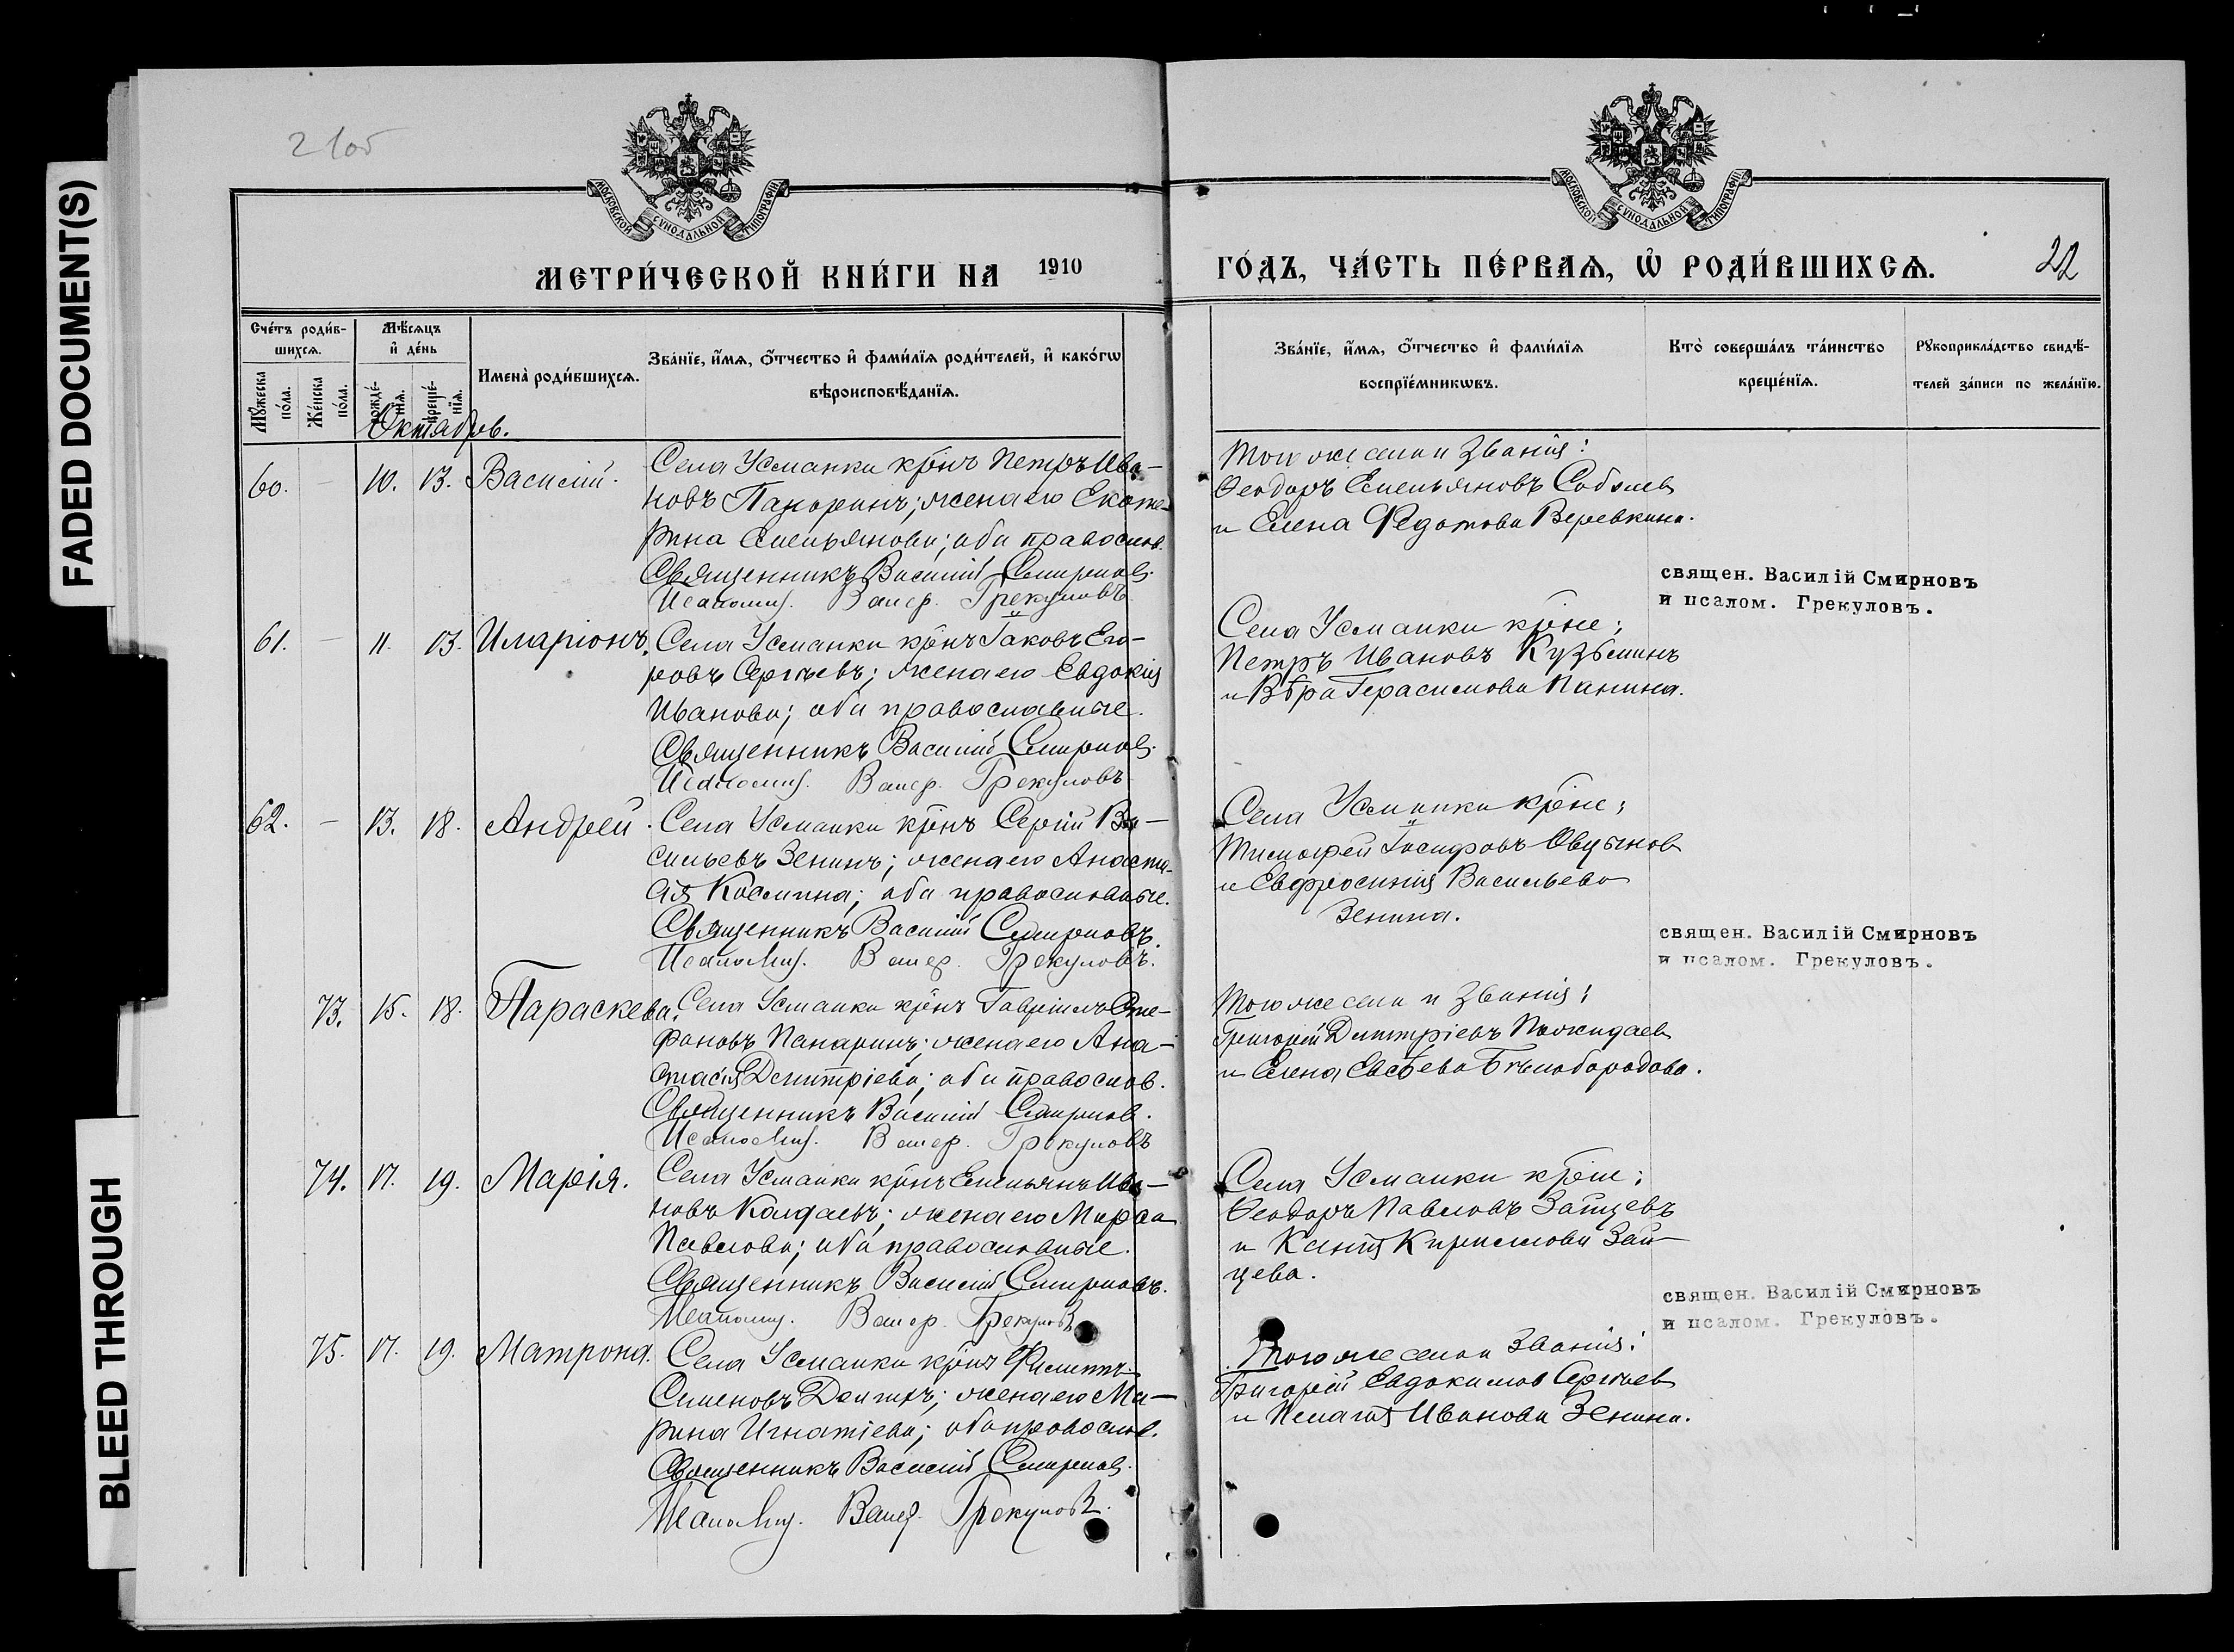 FADED DOCUMENT(S)
BLEED THROUGH
МОСКОВСКОЙ СѴНОДАЛЬНОЙ ТИПОГРАФІИ
МОСКОВСКОЙ СѴНОДАЛЬНОЙ ТИПОГРАФІИ
МЕТРИ́ЧЕСКОЙ КНИ́ГИ НА 1910
ГО́ДЪ, ЧА́СТЬ ПЕ́РВАѦ, Ѡ҆ РОДИ́ВШИХСѦ.
22
Сче́тъ роди́в-
шихсѧ.
Мꙋ́жеска
по́ла.
Же́нска
по́ла.
Мѣ́сѧцъ
и҆ де́нь
рожде́-
нїѧ.
креще́-
нїѧ.
Имена̀ роди́вшихсѧ.
Зва́нїе, и҆́мѧ, ѻ҆́тчество и҆ фами́лїѧ роди́телей, и҆ како́гѡ
вѣроисповѣ́данїѧ.
Зва́нїе, и҆́мѧ, ѻ҆́тчество и҆ фами́лїѧ
воспрїе́мникѡвъ.
Кто̀ соверша́лъ та́инство
креще́нїѧ.
Рꙋкоприкла́дство свидѣ́-
телей за́писи по жела́нїю.
Октябрь.
60. – 10. 13. Василій.
Села Усманки крнъ Петръ Ива-
новъ Панаринъ; жена его Екате-
рина Емельянова; оба православ.
Священникъ Василій Смирновъ.
Псаломщ. Валер. Грекуловъ
Того же села и званія:
Ѳеодоръ Емельяновъ Соболев
и Елена Федотова Веревкина.
свящeн. Василій Смирновъ
и псалом. Грекуловъ.
61. – 11. 13. Иларіонъ.
Села Усманки крнъ Іаковъ Его-
ровъ Сергѣевъ; жена его Евдокія
Иванова; оба православные.
Священникъ Василій Смирновъ.
Псаломщ. Валер. Грекуловъ
Села Усманки крне:
Петръ Ивановъ Кузьминъ
и Вѣра Герасимова Панина.
62. – 13. 18. Андрей.
Села Усманки крнъ Сергій Ва-
сильевъ Зенинъ; жена его Анаста-
сія Космина; оба православные.
Священникъ Василій Смирновъ.
Псаломщ. Валер. Грекуловъ.
Села Усманки крне:
Тимофей Іосифовъ
и Евфросинія Васильева
Зенина.
свящeн. Василій Смирновъ
и псалом. Грекуловъ.
73. 15. 18. Параскева.
Села Усманки крнъ Гавріилъ Сте-
фановъ Панаринъ; жена его Ана-
стасія Димитріева; оба православ.
Священникъ Василій Смирнов.
Псаломщ. Валер. Грекуловъ
Того же села и званія:
Григорій Димитріевъ Пожидаев
и Елена Евсѣева Бѣлобородова.
74. 17. 19. Марія.
Села Усманки крнъ Емельянъ Ива-
новъ Колдаевъ; жена его Марѳа
Павлова; оба православные.
Священникъ Василій Смирновъ.
Псаломщ. Валер. Грекуловъ
Села Усманки крне:
Ѳеодоръ Павловъ Зайцевъ
и Ксенія Кириллова Зай-
цева.
свящeн. Василій Смирновъ
и псалом. Грекуловъ.
75. 17. 19. Матрона.
Села Усманки крнъ
Сименовъ жена его Ма-
рина Игнатіева; оба православ.
Священникъ Василій Смирновъ.
Псаломщ. Валер. Грекуловъ.
Того же села и званія:
Григорій Евдокимов Сергѣев
и Пелагія Иванова Зенина.